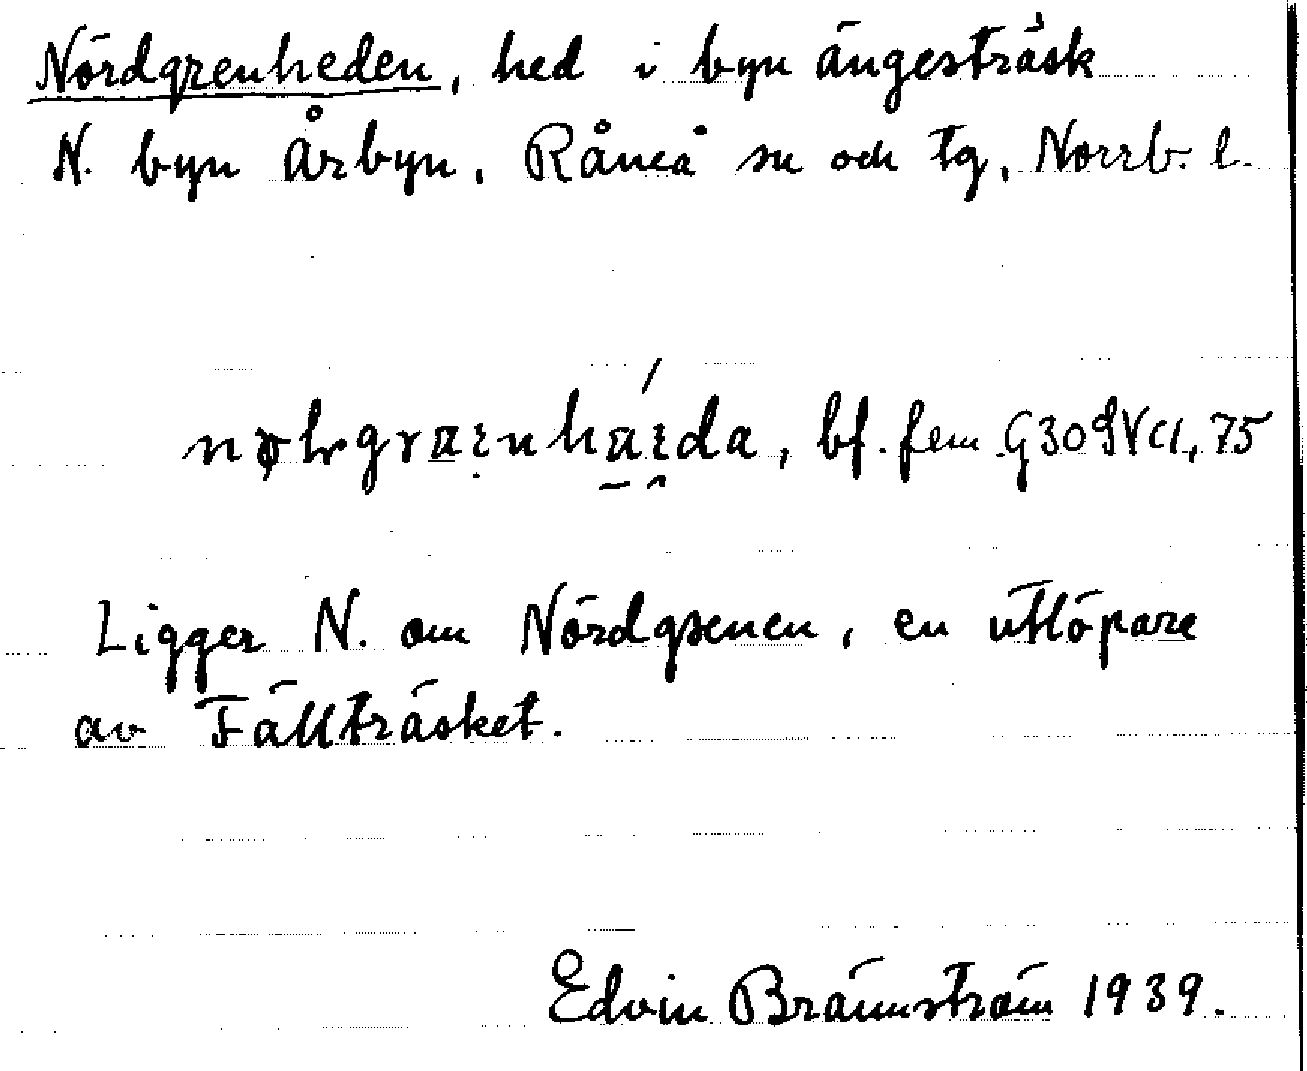 Nördgrenheden, hed i byn Ängesträsk
N. byn Årbyn, Råneå sn och tg, Norrb. l.
bf. fem
Ligger N. om Nördgrenen, en utlöpare
av Fällträsket.
Edvin Brännström 1939.